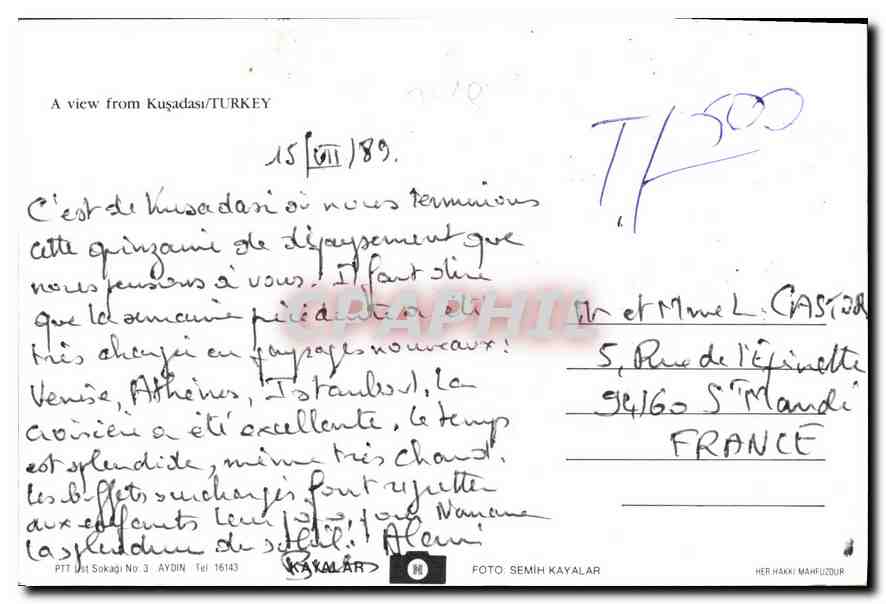 A view from Kuşadası/TURKEY
T/500
15/VII/89.
C'est de Kusadasi où nous terminions
cette quinzaine de dépaysement que
nous pensions à vous. Il faut dire
que la semaine précédente a été
très chargée en paysages nouveaux :
Venise, Athènes, Istanbul, la
croisière a été excellente, le temps
est splendide, même très chaud.
Les buffets surchargés font regretter
aux enfants leur
la splendeur du soleil. Alain
Mr et Mme L. CASTOR
5, Rue de l'Epinette
94160 St Mandé
FRANCE
CPAPHIL
PTT Üst Sokağı No: 3 AYDIN Tel: 16143
KAYALAR
FOTO: SEMİH KAYALAR
HER HAKKI MAHFUZDUR